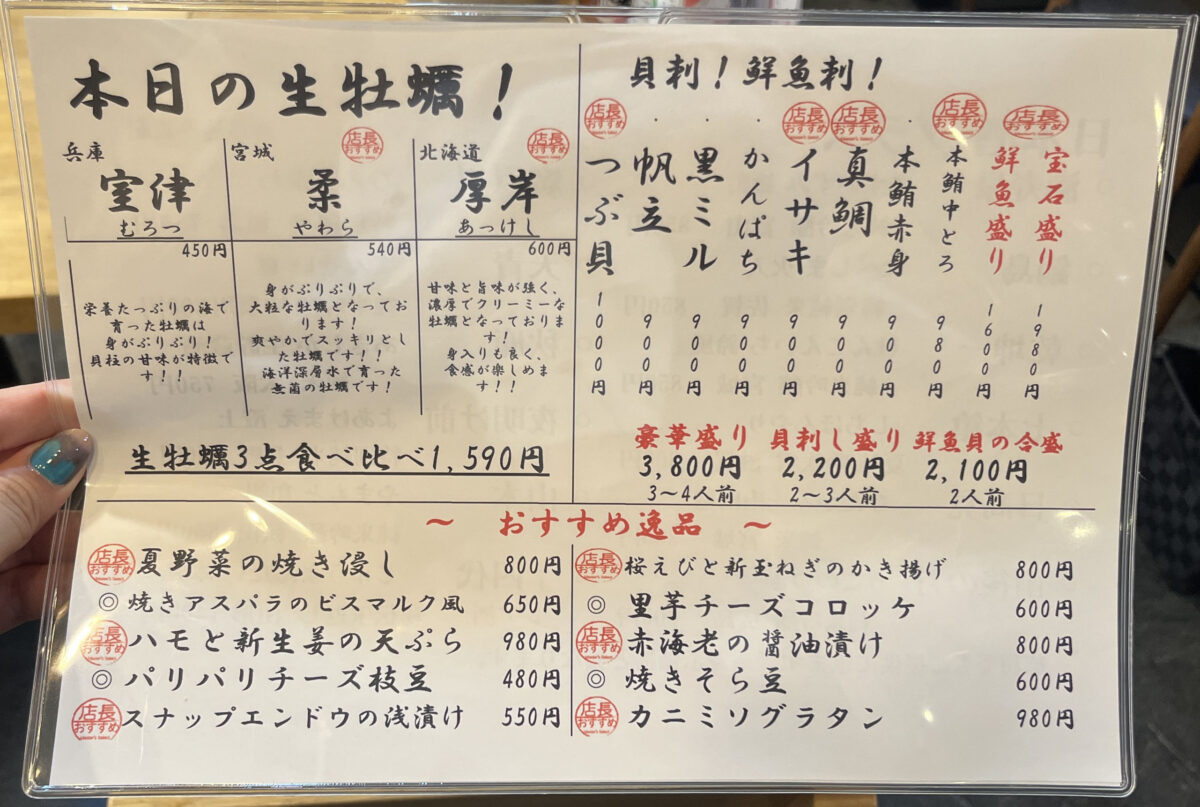 本日の生牡蠣！
兵庫
室津
むろつ
450円
栄養たっぷりの海で
育った牡蠣は
身がぷりぷり！
貝柱の甘味が特徴で
す！！
宮城
店長
おすすめ
柔
やわら
540円
身がぷりぷりで、
大粒な牡蠣となってお
ります！
爽やかでスッキリとし
た牡蠣です！！
海洋深層水で育った
無菌の牡蠣です！
北海道
店長
おすすめ
厚岸
あっけし
600円
甘味と旨味が強く、
濃厚でクリーミーな
牡蠣となっておりま
す！
身入りも良く、
食感が楽しめま
す！！
生牡蠣3点食べ比べ1,590円
貝刺！鮮魚刺！
店長
おすすめ
宝石盛り
1980円
鮮魚盛り
1600円
店長
おすすめ
本鮪中とろ
980円
・本鮪赤身
900円
店長
おすすめ
真鯛
900円
店長
おすすめ
イサキ
900円
・かんぱち
900円
・黒ミル
900円
・帆立
900円
店長
おすすめ
つぶ貝
1000円
豪華盛り 貝刺し盛り 鮮魚貝の合盛
3,800円 2,200円 2,100円
3～4人前 2～3人前 2人前
～ おすすめ逸品 ～
店長
おすすめ
夏野菜の焼き浸し 800円
◎ 焼きアスパラのビスマルク風 650円
店長
おすすめ
ハモと新生姜の天ぷら 980円
◎ パリパリチーズ枝豆 480円
店長
おすすめ
スナップエンドウの浅漬け 550円
店長
おすすめ
桜えびと新玉ねぎのかき揚げ 800円
◎ 里芋チーズコロッケ 600円
店長
おすすめ
赤海老の醤油漬け 800円
◎ 焼きそら豆 600円
店長
おすすめ
カニミソグラタン 980円